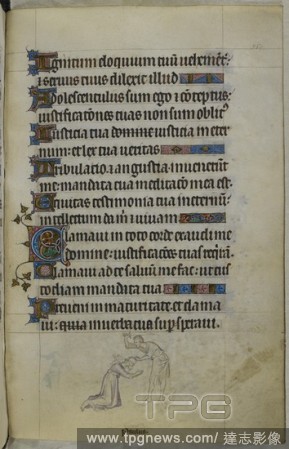 Ignitum eloquium tuū uehemēt̄:
⁊ seruus tuus dilexit illud
Adolescentulus sum ego ⁊ cōtēptus:
iustificatōnes tuas non sum oblit⁹
Iusticia tua domine iusticia in eter
num: et lex tua ueritas
Tribulatio ⁊ angustia inuenerūt
me: mandata tua meditacō mea est
Equitas testimonia tua in eternū:
intellectum da m̄ ⁊ uiuam
Clamaui in toto corde exaudi me
domine: iustificacōes tuas requirā
Clamaui ad te saluū me fac: ut cus
todiam mandata tua
Preueni in maturitate et clama
ui: quia in uerba tua supsperaui.
TPG
www.tpgnews.com/ 達志影像